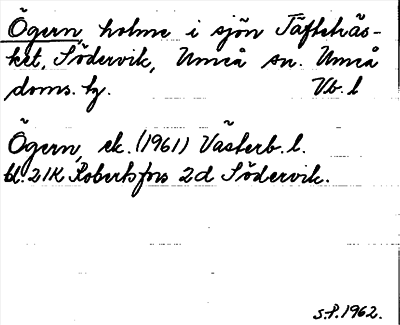 Ögern, holme i sjön Täfteträs-
ket, Södervik, Umeå sn. Umeå
doms. hg. Vb. l
Ögern, ek. (1961) Västerb. l.
bl. 21K Robertsfors 2d Södervik.
S.P. 1962.